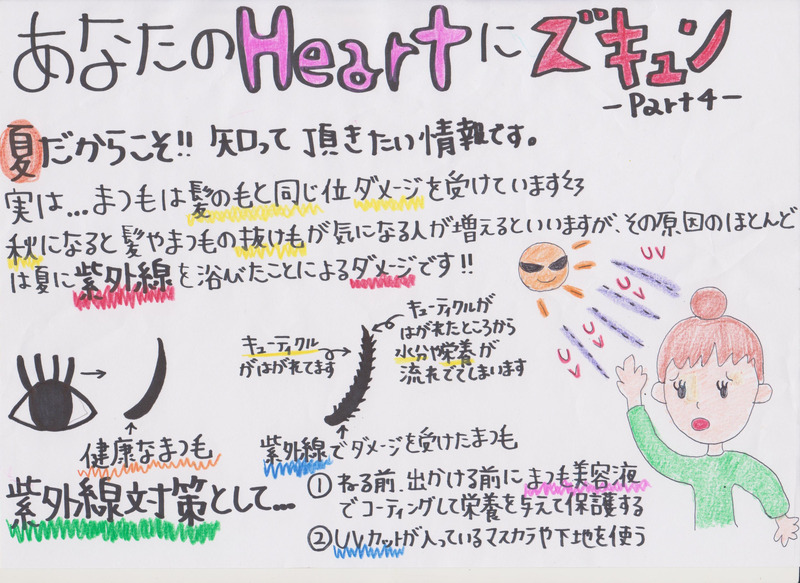 あなたのHeartにズキュン
-Part4-
夏だからこそ!! 知って頂きたい情報です。
実は…まつ毛は髪の毛と同じ位ダメージを受けています
秋になると髪やまつもの抜け毛が気になる人が増えるといいますが、その原因のほとんど
は夏に紫外線を浴びたことによるダメージです!!
UV
UV
UV
UV
キューティクル
がはがれてます
キューティクルが
はがれたところから
水分や栄養が
流れでてしまいます
健康なまつ毛
紫外線でダメージを受けたまつ毛
紫外線対策として…
①ねる前、出かける前にまつも美容液
でコーティングして栄養を与えて保護する
②UVカットが入っているマスカラや下地を使う